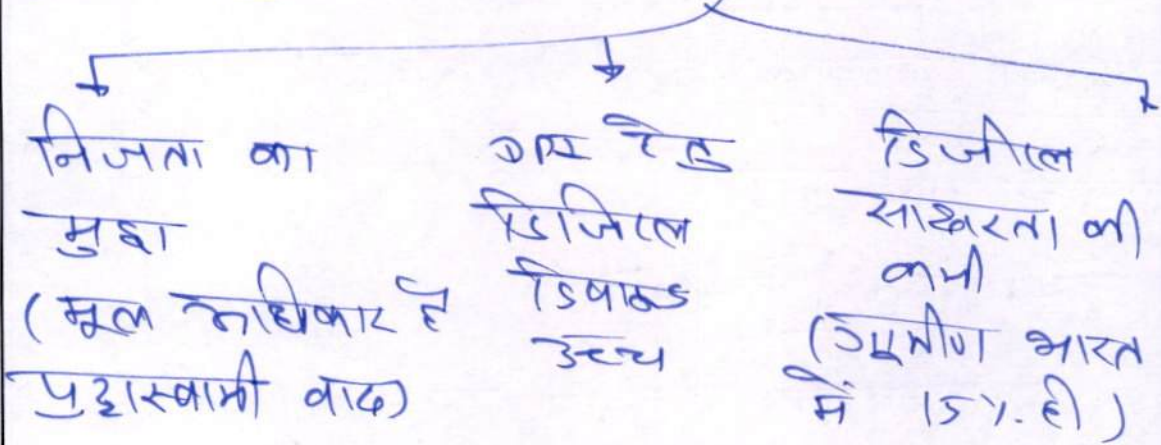 निजता का
मुद्दा
(मूल अधिकार है
पुट्टास्वामी वाद)
डिजिटल
डिवाइड
उच्च
डिजीटल
साक्षरता की
कमी
(ग्रामीण भारत
में 15%. ही)